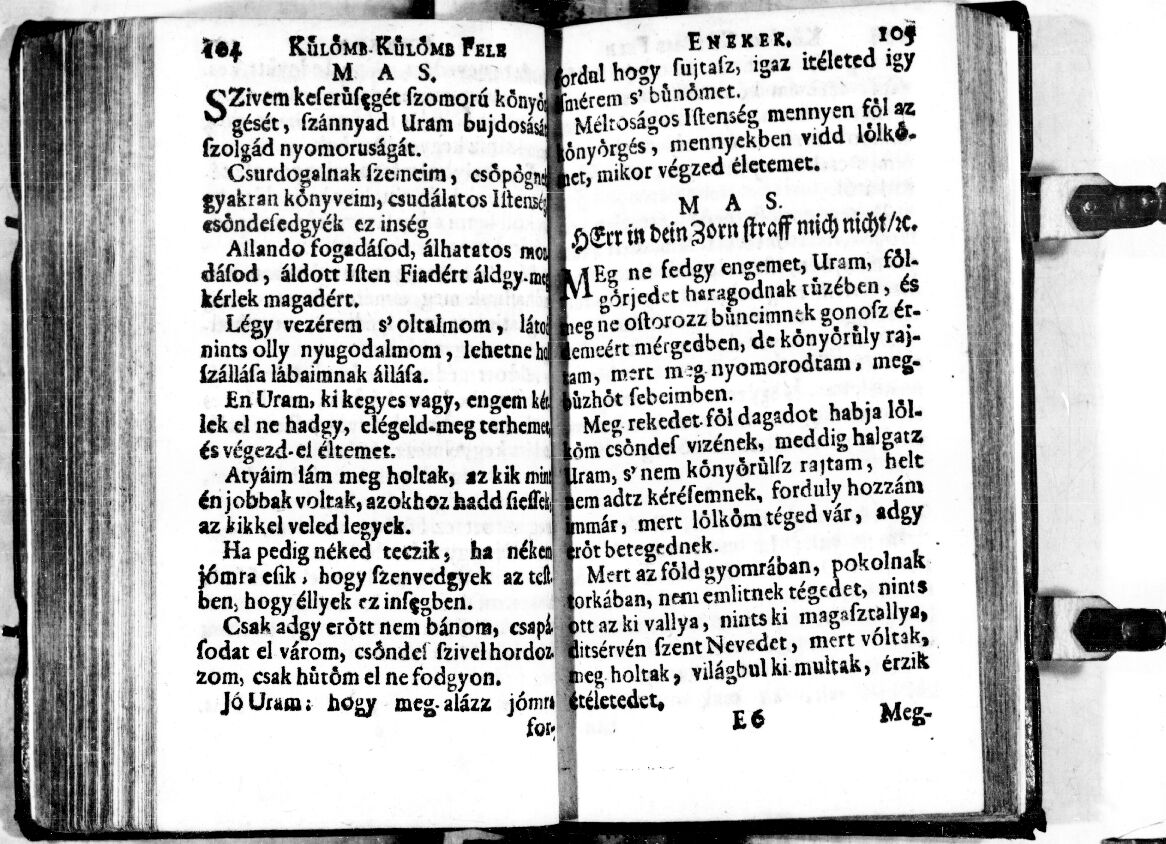 104 KÜLÖMB-KÜLÖMB FELE
M A S.
SZivem keſerüſęgét ſzomorú kőnyő
gését, ſzánnyad Uram bujdosásá
ſzolgád nyomoruságát.
Csurdogalnak ſzemeim, csőpőgne
gyakran kőnyveim, csudálatos Iſtenség
csőndeſedgyék ez inség
Allando fogadáſod, álhatatos mon
dáſod, áldott Iſten Fiadért áldgy-meg
kérlek magadért.
Légy vezérem s' oltalmom, látod
nints olly nyugodalmom, lehetne hol
ſzálláſa lábaimnak álláſa.
En Uram, ki kegyes vagy, engem kér
lek el ne hadgy, elégeld-meg terhemet,
és végezd-el éltemet.
Atyáim lám meg holtak, az kik mint
én jobbak voltak, azokhoz hadd ſieſſek,
az kikkel veled legyek.
Ha pedig néked teczik, ha néken
jómra eſik, hogy ſzenvedgyek az teſt-
ben, hogy éllyek ez inſęgben.
Csak adgy erőtt nem bánom, csapá
ſodat el várom, csőndeſ ſzivel hordoz-
zom, csak hütőm el ne fodgyon.
Jó Uram: hogy meg-alázz jómra
for-
ENEKEK. 105
fordul hogy ſujtaſz, igaz itéleted igy
eſmérem s' bűnőmet.
Méltoságos Iſtenség mennyen fől az
kőnyőrgés, mennyekben vidd lőlkő-
met, mikor végzed életemet.
M A S.
HErr in dein Zorn ſtraff mich nicht/ꝛc.
MEg ne fedgy engemet, Uram, fől-
gőrjedet haragodnak tüzében, és
meg ne oſtorozz bűneimnek gonoſz ér-
demeért mérgedben, de kőnyőrűly raj-
tam, mert meg-nyomorodtam, meg-
bűzhőt ſebeimben.
Meg rekedet fől dagadot habja lől-
kőm csőndeſ vizének, meddig halgatz
Uram, s' nem kőnyőrűlſz rajtam, helt
nem adtz kéréſemnek, forduly hozzám
immár, mert lőlkőm téged vár, adgy
erőt betegednek.
Mert az főld gyomrában, pokolnak
torkában, nem emlitnek tégedet, nints
ott az ki vallya, nints ki magaſztallya,
ditsérvén ſzent Nevedet, mert vóltak,
meg holtak, világbul ki multak, érzik
étéletedet,
E 6 Meg-